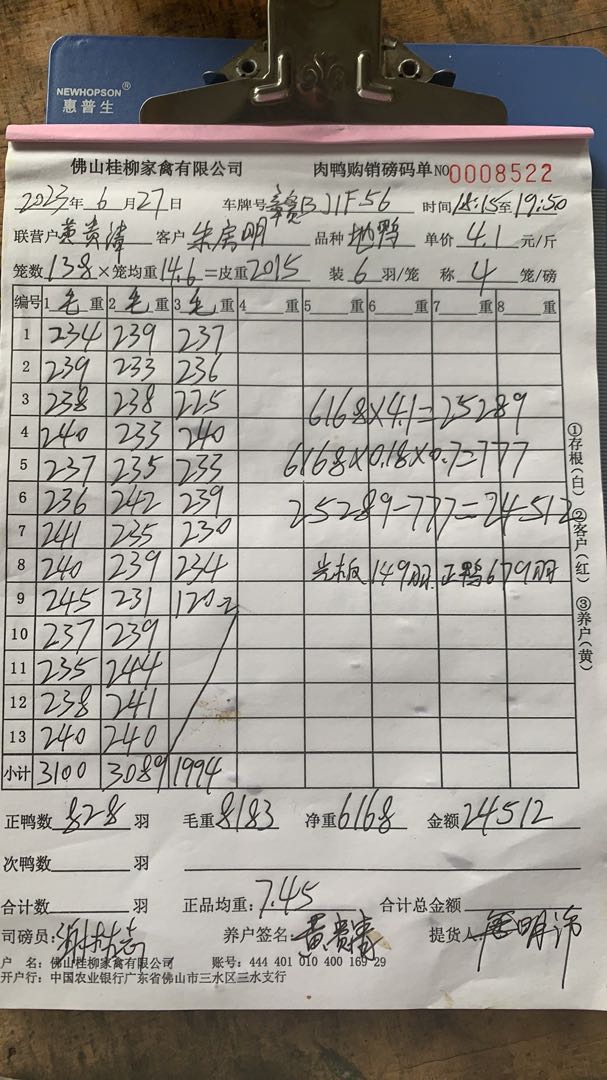 NEWHOPSON®
惠普生
佛山桂柳家禽有限公司 肉鸭购销磅码单 NO 0008522
2023年6月27日 车牌号 BJ1F56 时间18:15至19:50
联营户 黄贵 客户 朱 明 品种 地鸭 单价 4.1 元/斤
笼数138×笼均重14.6=皮重2015 装6羽/笼 称4笼/磅
编号 1毛重 2毛重 3毛重 4 重 5 重 6 重 7 重 8 重
1 234 239 237
2 239 233 236
3 238 238 225
4 240 233 240
5 237 235 233
6 236 242 239
7 241 235 230
8 240 239 234
9 245 231 120
10 237 239
11 235 244
12 238 241
13 240 240
小计 3100 3089 1994
6168×4.1=25289
6168×0.18×0.7=777
25289-777=24512
光板149羽 正鸭679羽
①存根(白) ②客户(红) ③养户(黄)
正鸭数 828 羽 毛重8183 净重6168 金额24512
次鸭数 羽
合计数 羽 正品均重:7.45 合计总金额
司磅员: 谢 志 养户签名: 黄贵 提货人: 明
户 名: 佛山桂柳家禽有限公司 账号: 444 401 010 400 169 29
开户行: 中国农业银行广东省佛山市三水区三水支行